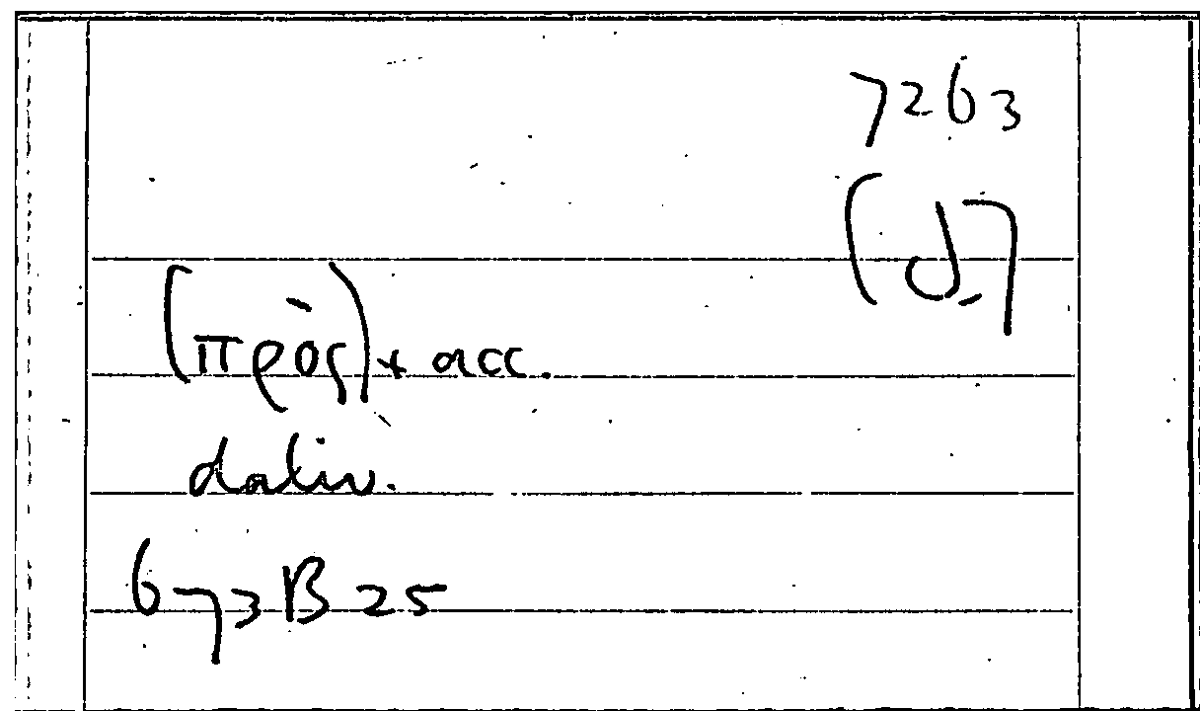 7263
(d.)
(πρὸς) + acc.
dativ.
673B25